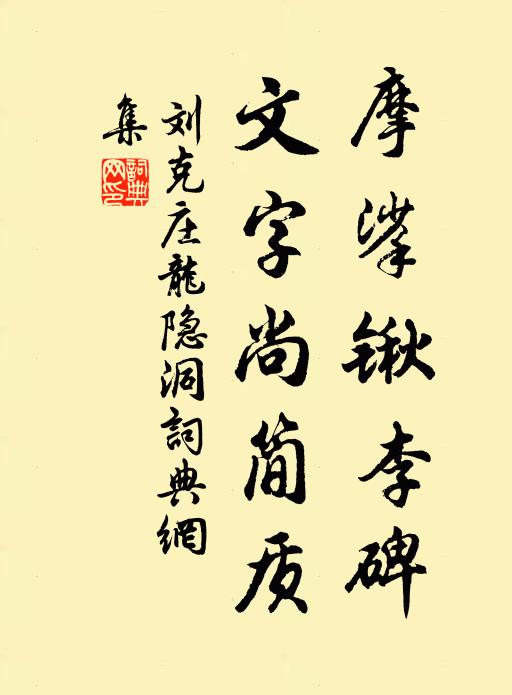 摩挲锹李碑
文字尚简质
刘克庄龍隐洞詞典網
集
詞典
网印